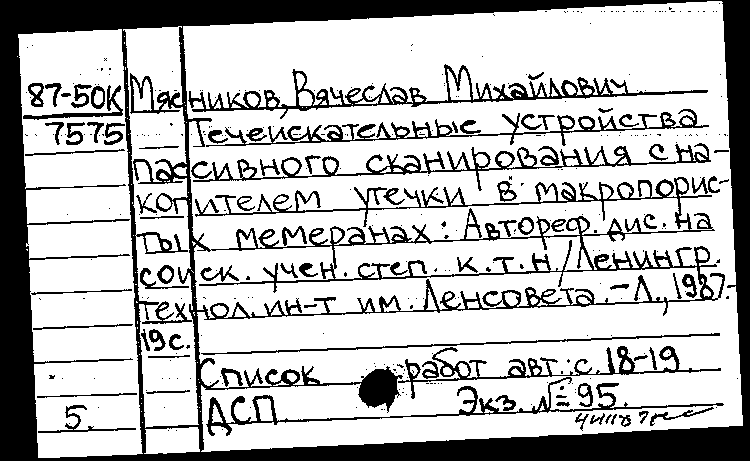 87-50К Мясников, Вячеслав Михайлович
7575 Течеискательные устройства
пассивного сканирования с на-
копителем утечки в макропорис-
тых мемеранах: Автореф. дис. на
соиск. учен. степ. к.т.н / Ленингр.
технол. ин-т им. Ленсовета. - Л., 1987.-
19 с.
Список работ авт.: с. 18-19.
5. ДСП Экз. № 95.